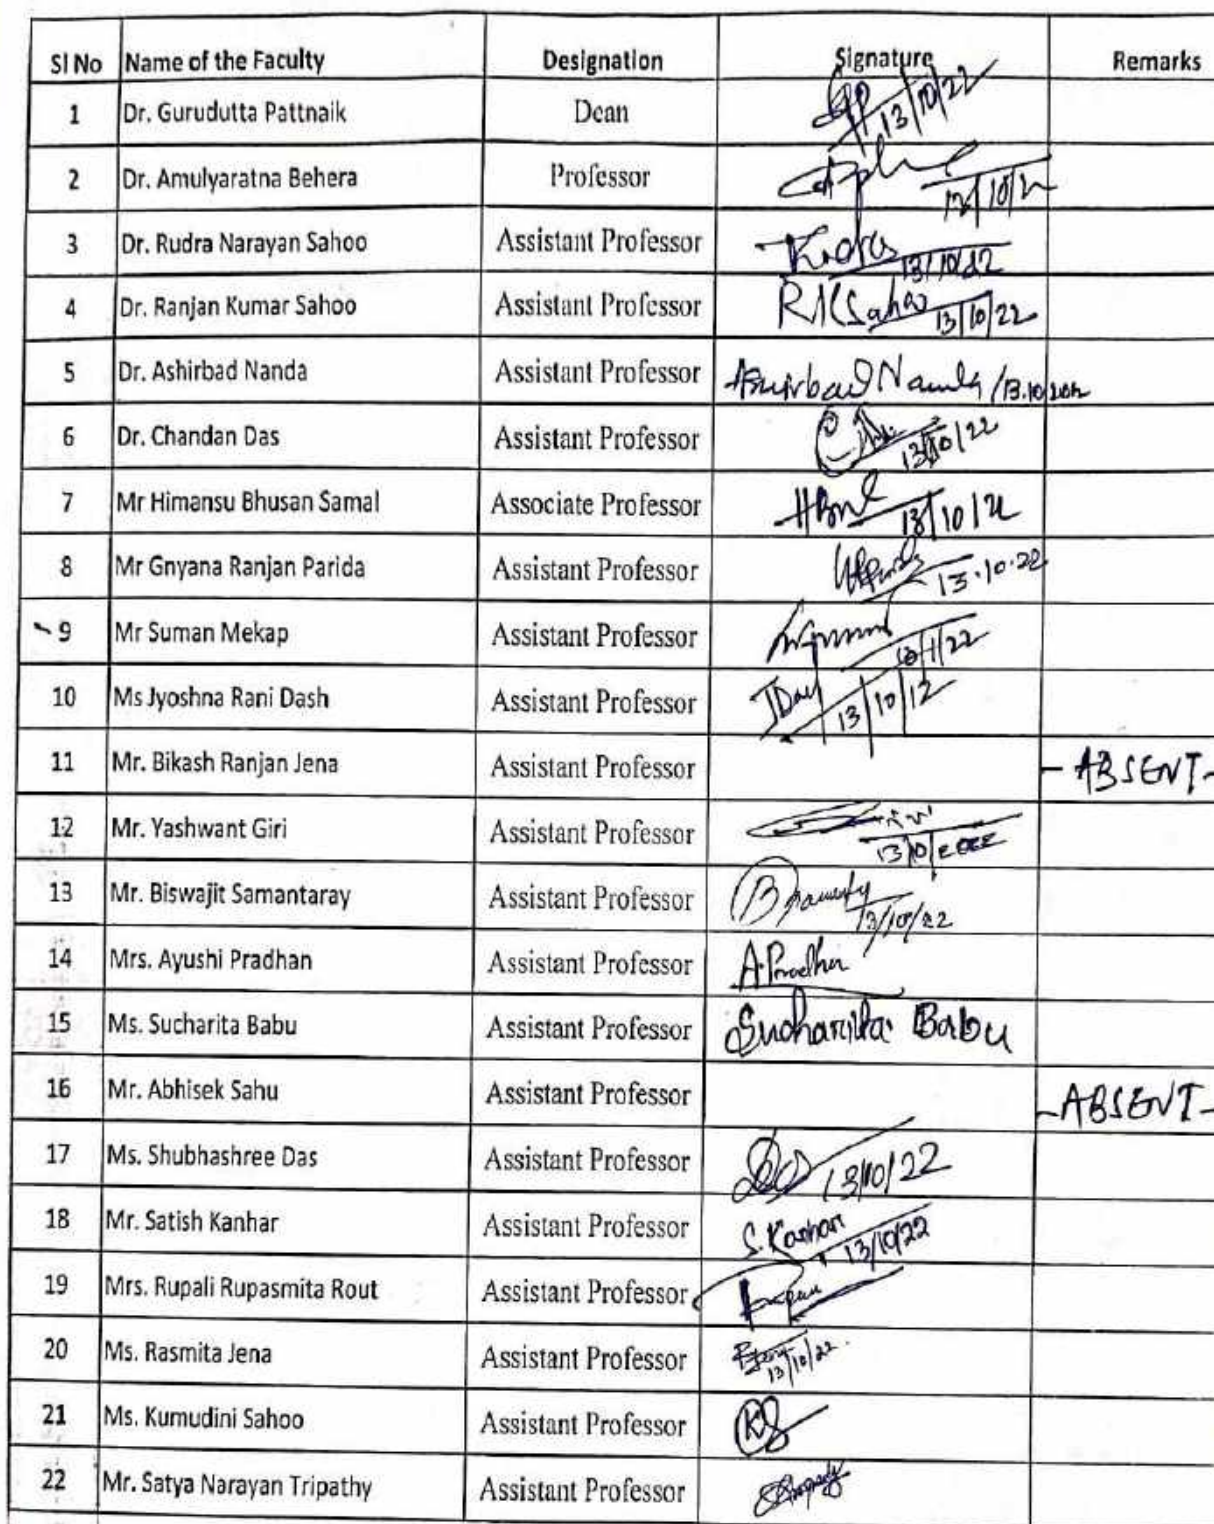 Sl No Name of the Faculty Designation Signature Remarks
1 Dr. Gurudutta Pattnaik Dean 13/10/22
2 Dr. Amulyaratna Behera Professor
3 Dr. Rudra Narayan Sahoo Assistant Professor Rudra 13/10/22
4 Dr. Ranjan Kumar Sahoo Assistant Professor RKSahoo 13/10/22
5 Dr. Ashirbad Nanda Assistant Professor Ashirbad Nanda /13.10.2022
6 Dr. Chandan Das Assistant Professor 13/10/22
7 Mr Himansu Bhusan Samal Associate Professor 13/10/22
8 Mr Gnyana Ranjan Parida Assistant Professor 13.10.22
9 Mr Suman Mekap Assistant Professor
10 Ms Jyoshna Rani Dash Assistant Professor JDash 13/10/12
11 Mr. Bikash Ranjan Jena Assistant Professor - ABSENT -
12 Mr. Yashwant Giri Assistant Professor 13/10/2022
13 Mr. Biswajit Samantaray Assistant Professor 13/10/22
14 Mrs. Ayushi Pradhan Assistant Professor A.Pradhan
15 Ms. Sucharita Babu Assistant Professor Sucharita Babu
16 Mr. Abhisek Sahu Assistant Professor - ABSENT -
17 Ms. Shubhashree Das Assistant Professor Das 13/10/22
18 Mr. Satish Kanhar Assistant Professor S. Kanhar 13/10/22
19 Mrs. Rupali Rupasmita Rout Assistant Professor
20 Ms. Rasmita Jena Assistant Professor RJena 13/10/22.
21 Ms. Kumudini Sahoo Assistant Professor KS
22 Mr. Satya Narayan Tripathy Assistant Professor